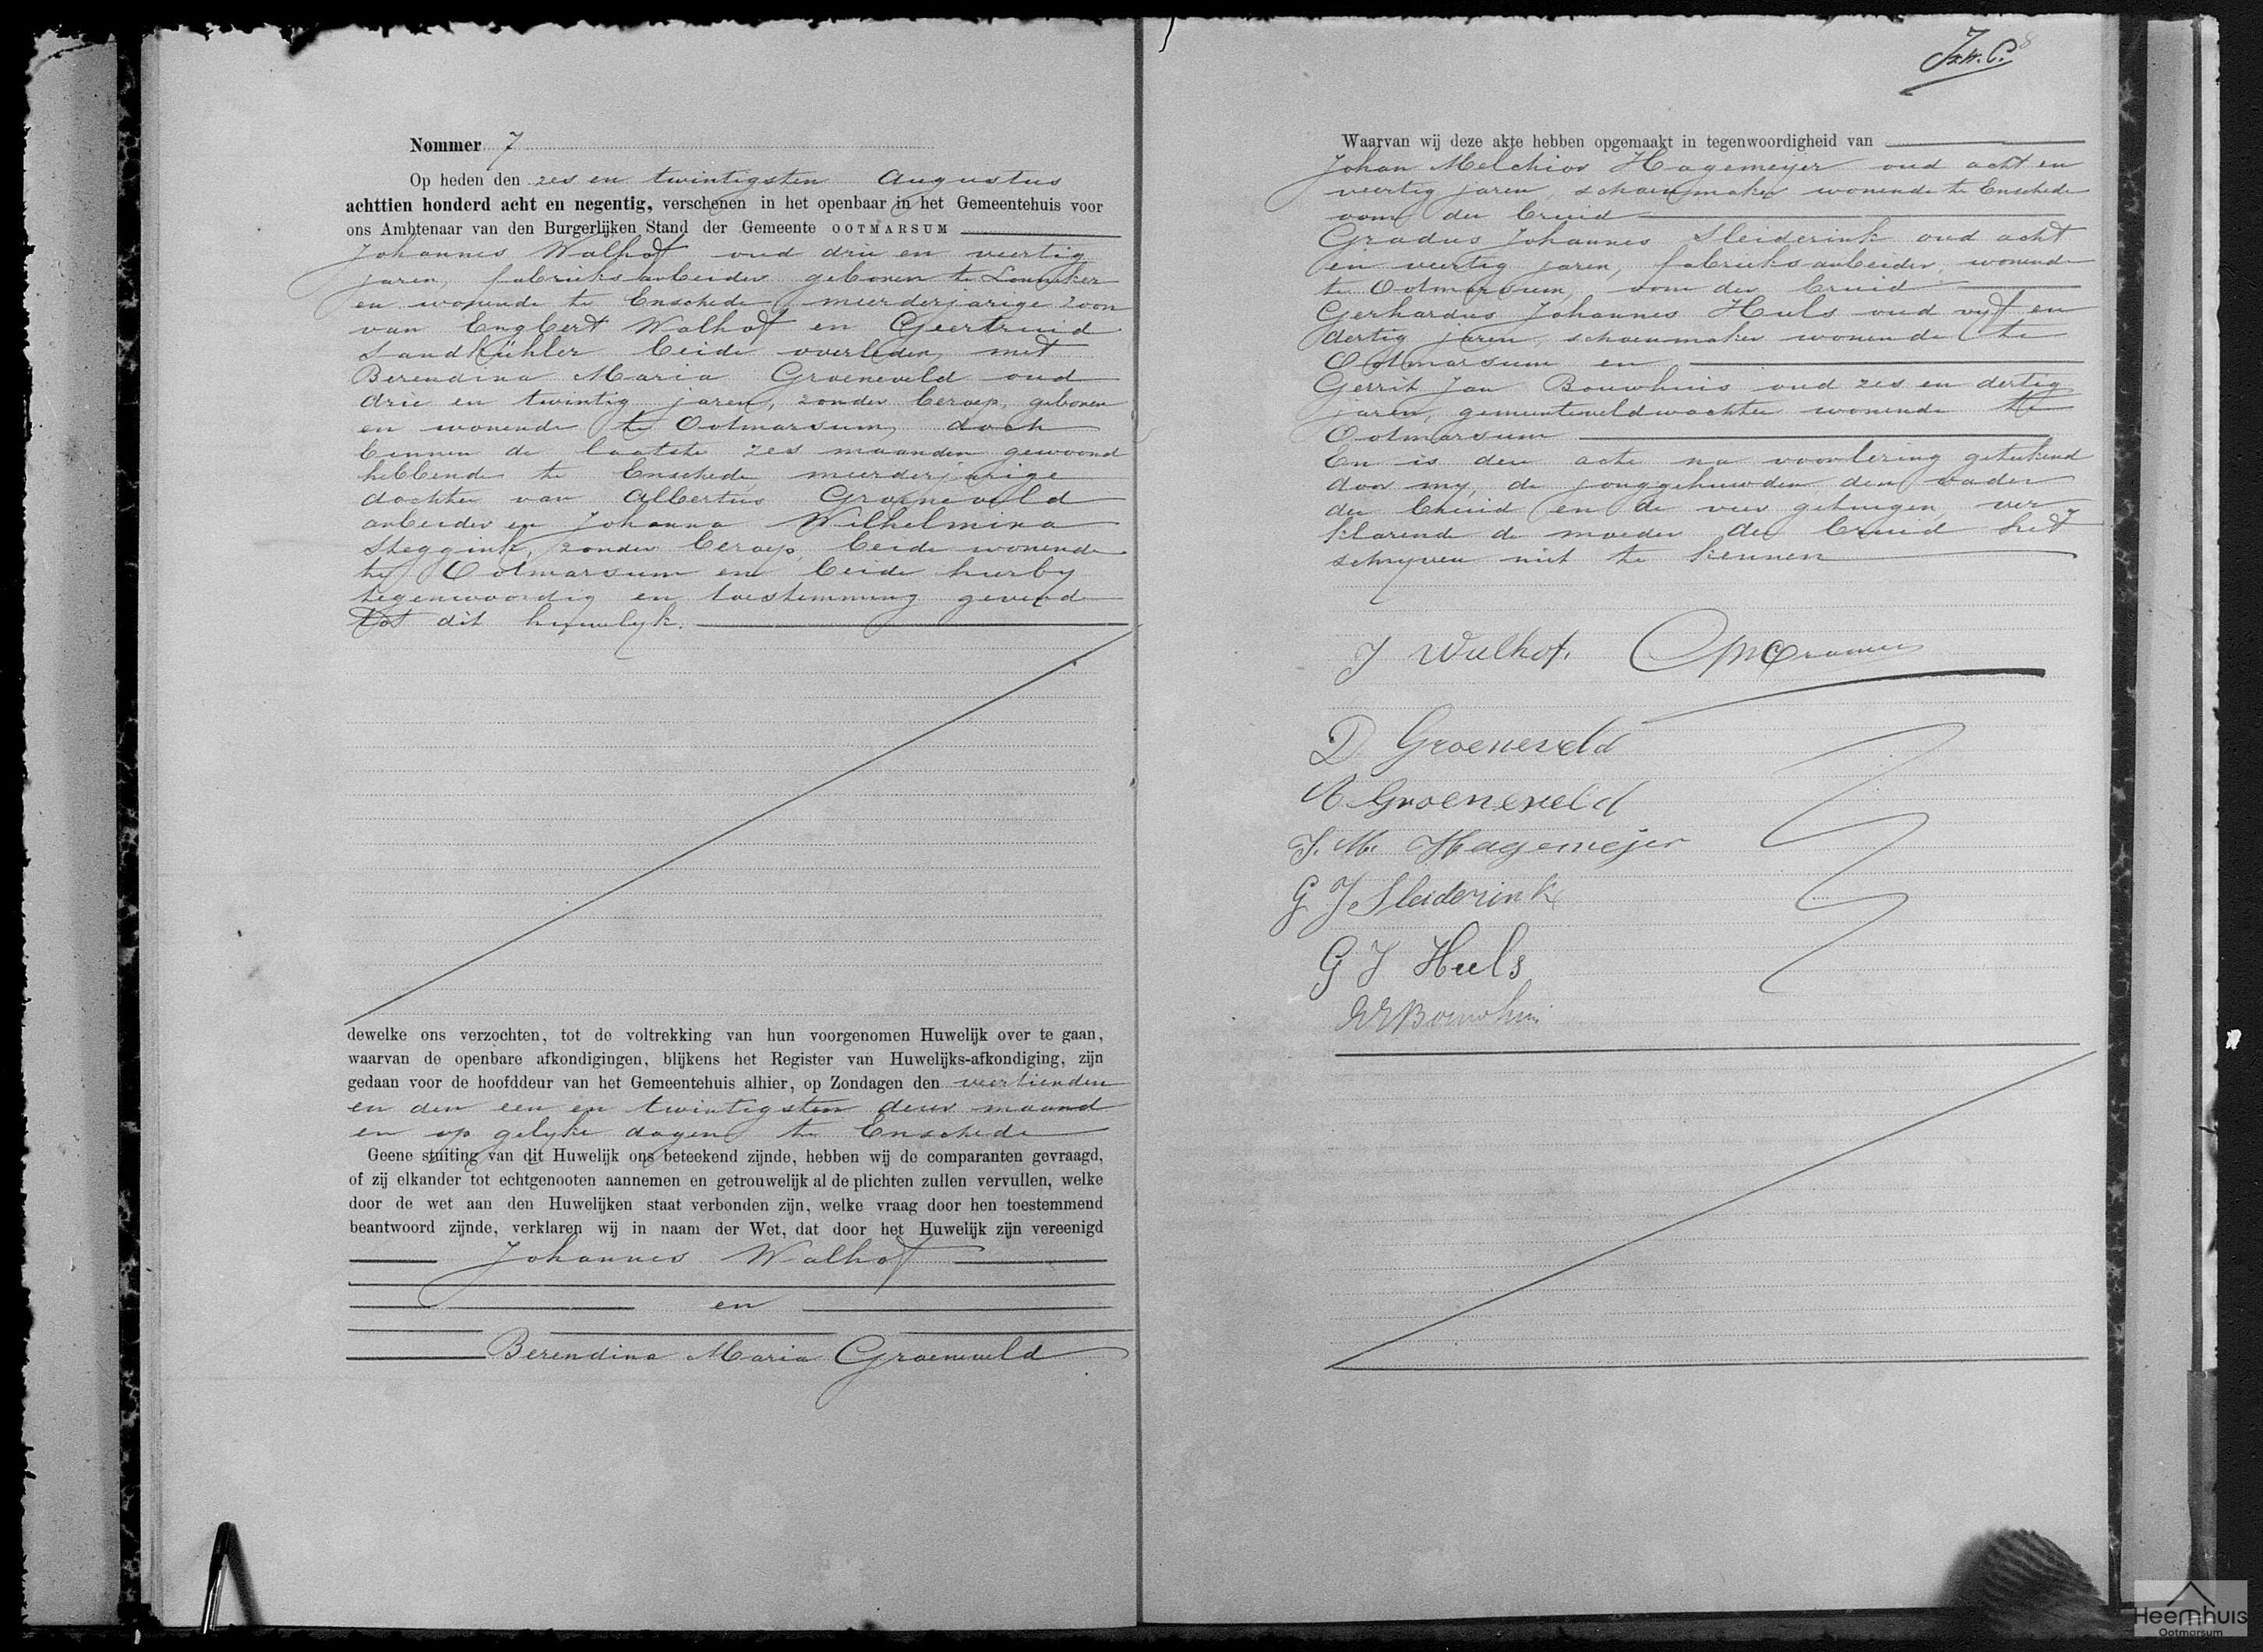 Nommer 7
Op heden den zes en twintigsten Augustus
achttien honderd acht en negentig, verschenen in het openbaar in het Gemeentehuis voor
ons Ambtenaar van den Burgerlijken Stand der Gemeente OOTMARSUM
Johannes Walhof oud drie en veertig
jaren, fabrieksarbeider geboren te Lonneker
en wonende te Enschede, meerderjarige zoon
van Engbert Walhof en Geertruid
Sandkühler beide overleden, met
Berendina Maria Groeneveld oud
drie en twintig jaren, zonder beroep, geboren
en wonende te Ootmarsum, doch
binnen de laatste zes maanden gewoond
hebbende te Enschede, meerderjarige
dochter van Albertus Groeneveld
arbeider en Johanna Wilhelmina
Steggink, zonder beroep, beide wonende
te Ootmarsum en beide hierby
tegenwoordig en toestemming gevende
tot dit huwelyk.
dewelke ons verzochten, tot de voltrekking van hun voorgenomen Huwelijk over te gaan,
waarvan de openbare afkondigingen, blijkens het Register van Huwelijks-afkondiging, zijn
gedaan voor de hoofddeur van het Gemeentehuis alhier, op Zondagen den veertienden
en den een en twintigsten dezer maand
en op gelyke dagen te Enschede
Geene stuiting van dit Huwelijk ons beteekend zijnde, hebben wij de comparanten gevraagd,
of zij elkander tot echtgenooten aannemen en getrouwelijk al de plichten zullen vervullen, welke
door de wet aan den Huwelijken staat verbonden zijn, welke vraag door hen toestemmend
beantwoord zijnde, verklaren wij in naam der Wet, dat door het Huwelijk zijn vereenigd
Johannes Walhof
en
Berendina Maria Groeneveld
8
Waarvan wij deze akte hebben opgemaakt in tegenwoordigheid van
Johan Melchior Hagemeijer oud acht en
veertig jaren, schoenmaker wonende te Enschede
oom der bruid
Gradus Johannes Sleiderink oud acht
en veertig jaren, fabrieksarbeider, wonende
te Ootmarsum, oom der bruid
Gerhardus Johannes Huls oud vyf en
dertig jaren, schoenmaker wonende te
Ootmarsum en
Gerrit Jan Bouwhuis oud zes en dertig
jaren, gemeenteveldwachter wonende te
Ootmarsum
En is deze acte na voorlezing geteekend
door my, de jonggehuwden den vader
der bruid en de vier getuigen, ver
klarende de moeder der bruid het
schryven niet te kennen
J Walhof.
D Groeneveld
A Groeneveld
J. M. Hagemejer
G J Sleiderink
G J Huls
Bouwhuis
Heemhuis
Ootmarsum